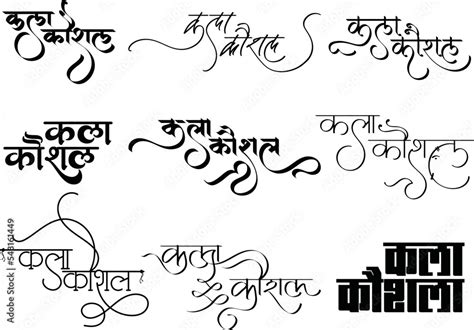 कला
कौशल
कला
कौशल
कला
कौशल
कला
कौशल
कला
कौशल
कला
कौशल
कला
कौशल
कला
कौशल
कला
कौशल
Adobe Stock | #543161449